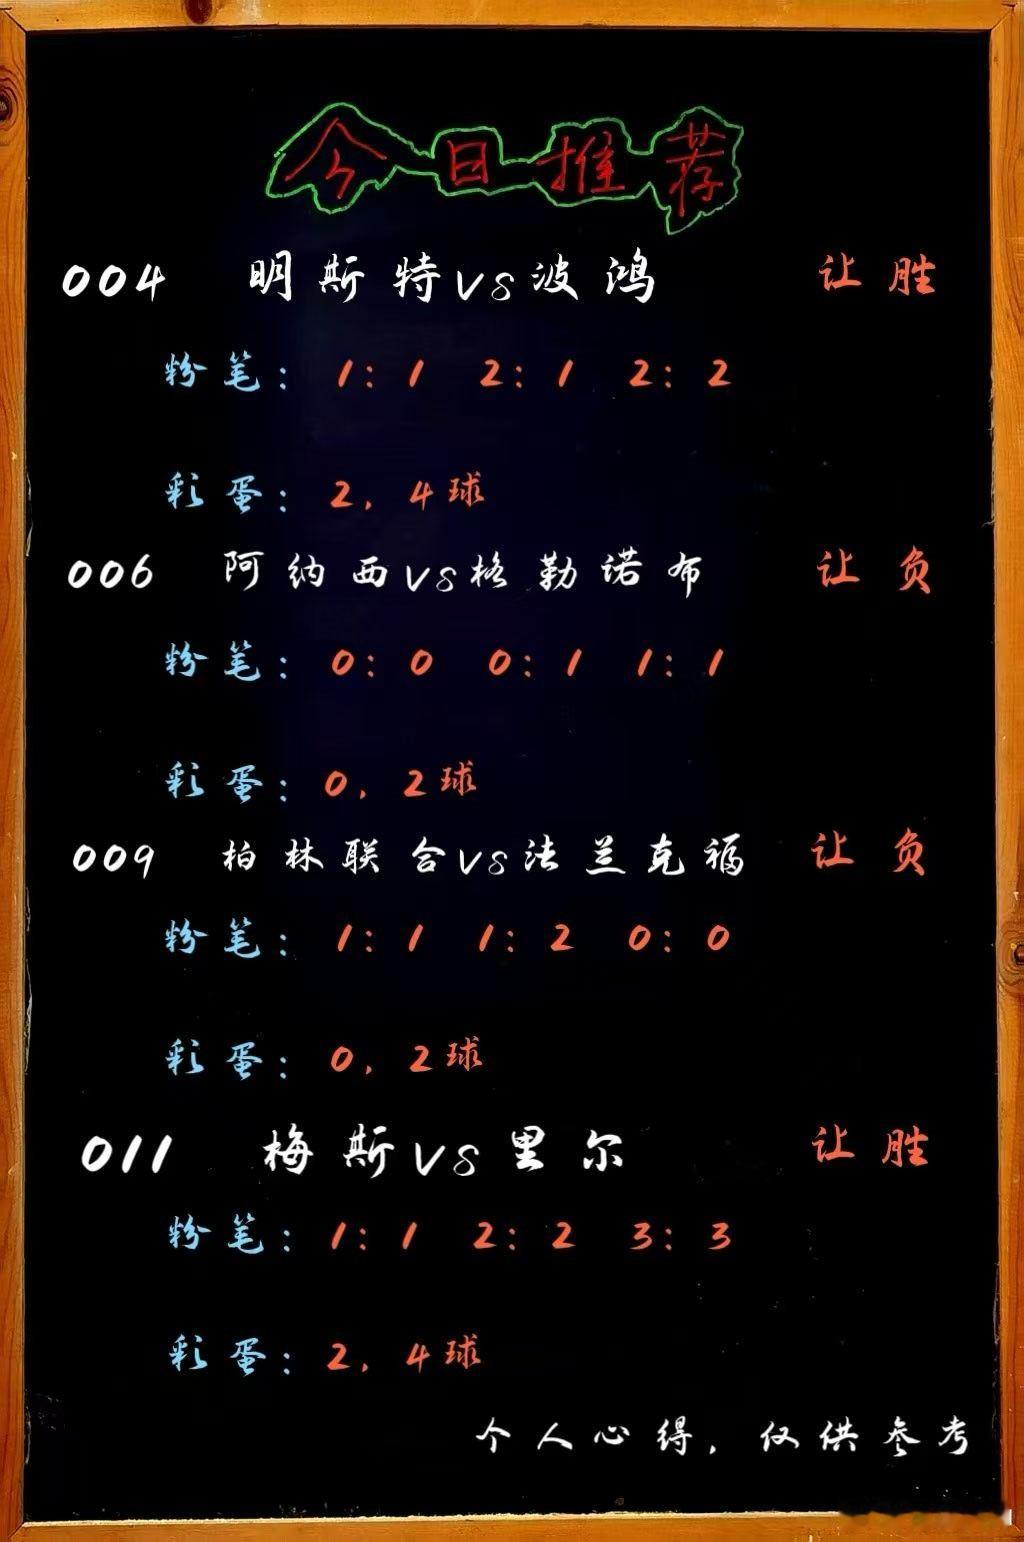 今日推荐
004 明斯特vs波鸿 让胜
粉笔: 1:1 2:1 2:2
彩蛋: 2, 4球
006 阿纳西vs格勒诺布 让负
粉笔: 0:0 0:1 1:1
彩蛋: 0, 2球
009 柏林联合vs法兰克福 让负
粉笔: 1:1 1:2 0:0
彩蛋: 0, 2球
011 梅斯vs里尔 让胜
粉笔: 1:1 2:2 3:3
彩蛋: 2, 4球
个人心得, 仅供参考